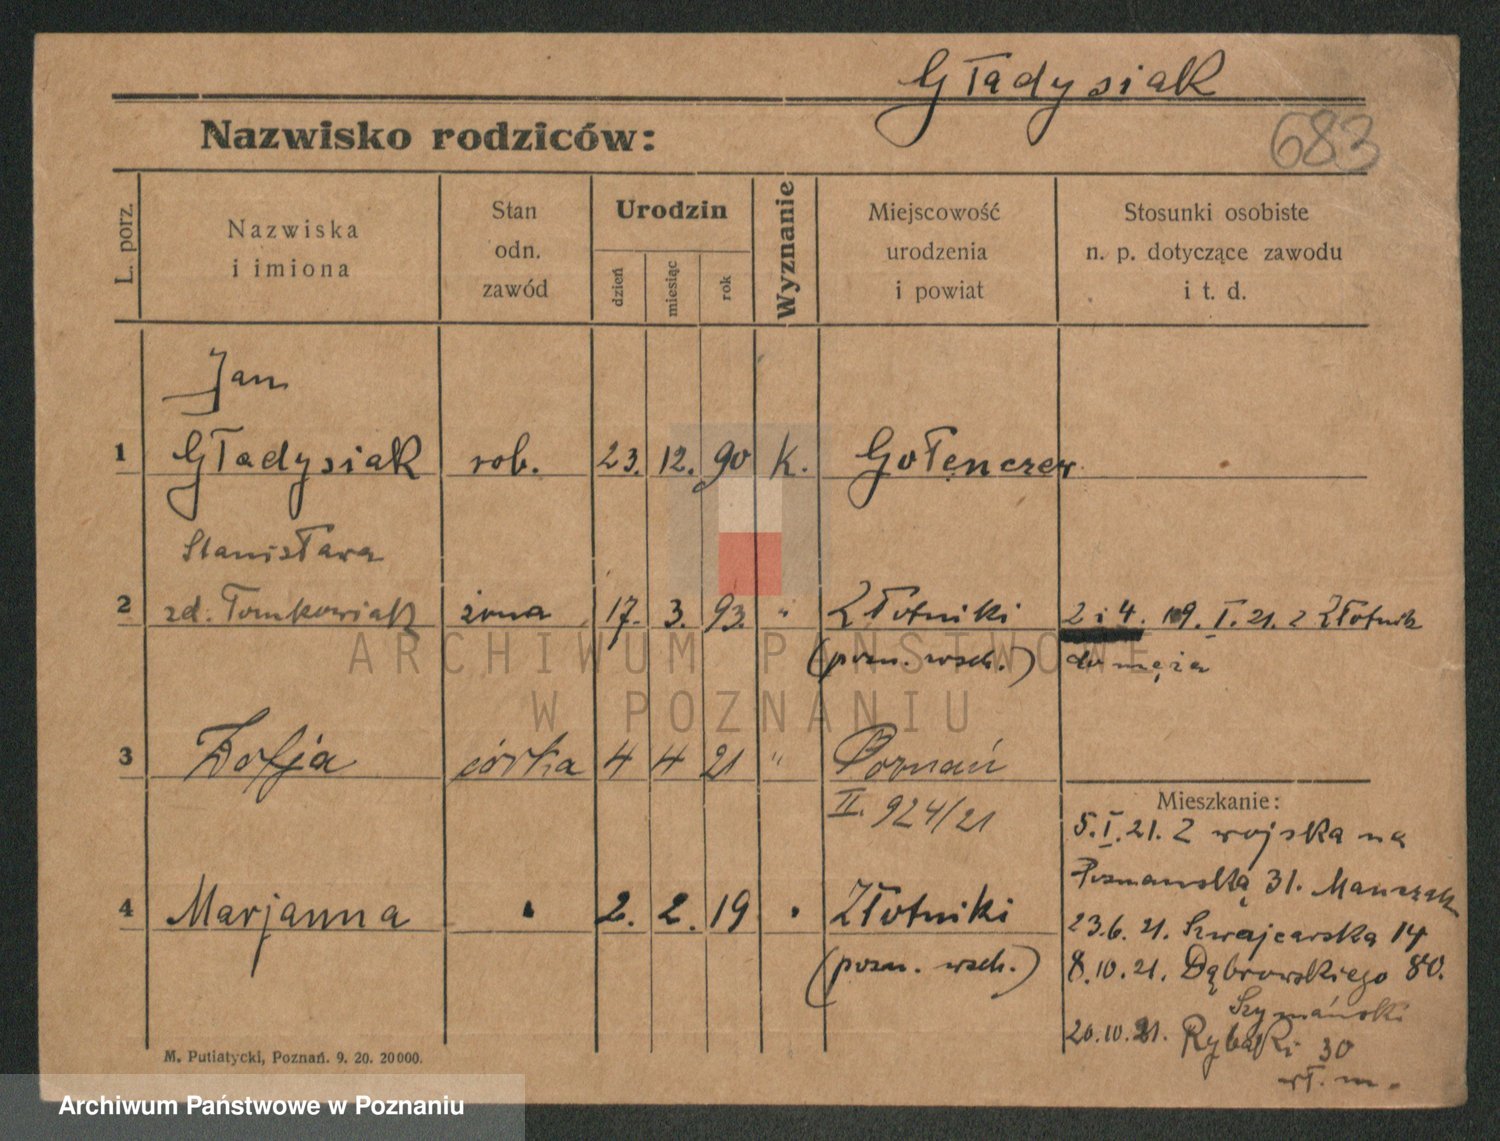 Gładysiak
683
Nazwisko rodziców:
L. porz.
Nazwiska
i imiona
Stan
odn.
zawód
Urodzin
dzień
miesiąc
rok
Wyznanie
Miejscowość
urodzenia
i powiat
Stosunki osobiste
n. p. dotyczące zawodu
i t. d.
Jan
1 Gładysiak rob. 23. 12. 90 K. Gołenczew
Stanisława
2 zd. Tomkowiak żona 17. 3. 93. " Złotniki 2 i 4. 19. I. 21. z Złotnik
(pozn. wsch.) do męża
3 Zofja córka 4 4 21 " Poznań
II. 924/21
Mieszkanie:
5. I. 21. Z wojska na
Poznanską 31. Manczak
4 Marjanna " 2. 2. 19 " Złotniki
23.6. 21. Szwajcarska 14
(pozn. wsch.)
8.10.21. Dąbrowskiego 80.
Szymański
20.10.21. Rybaki 30
wł. m.
M. Putiatycki, Poznań. 9. 20. 20000.
ARCHIWUM PAŃSTWOWE
W POZNANIU
Archiwum Państwowe w Poznaniu